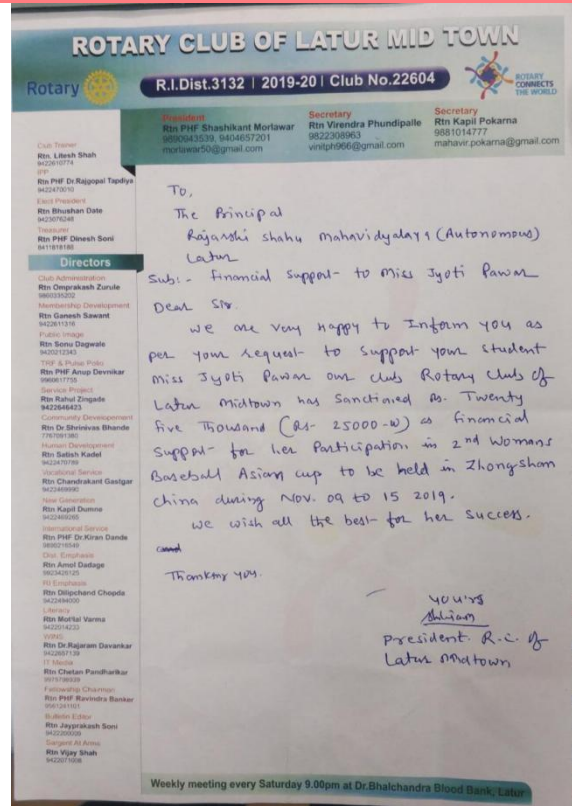 ROTARY CLUB OF LATUR MID TOWN
Rotary
R.I.Dist.3132 | 2019-20 | Club No.22604
ROTARY
CONNECTS
THE WORLD
President
Rtn PHF Shashikant Morlawar
9890943539, 9404657201
morlawar50@gmail.com
Secretary
Rtn Virendra Phundipalle
9822308963
vinitph966@gmail.com
Secretary
Rtn Kapil Pokarna
9881014777
mahavir.pokarna@gmail.com
Club Trainer
Rtn. Litesh Shah
9422610774
IPP
Rtn PHF Dr.Rajgopal Tapdiya
9422470010
Elect President
Rtn Bhushan Date
9423076248
Treasurer
Rtn PHF Dinesh Soni
9411818186
Directors
Club Administration
Rtn Omprakash Zurule
9860335202
Membership Development
Rtn Ganesh Sawant
9422611316
Public Image
Rtn Sonu Dagwale
9420212343
TRF & Pulse Polio
Rtn PHF Anup Devnikar
9969617755
Service Project
Rtn Rahul Zingade
9422646423
Community Developement
Rtn Dr.Shrinivas Bhande
7767081380
Human Development
Rtn Satish Kadel
9422470789
Vocational Service
Rtn Chandrakant Gastgar
9422469990
New Generation
Rtn Kapil Dumne
9422469265
International Service
Rtn PHF Dr.Kiran Dande
Dist. Emphasis
Rtn Amol Dadage
9923426125
RI Emphasis
Rtn Dilipchand Chopda
9422494000
Literacy
Rtn Motilal Varma
9422014233
WINS
Rtn Dr.Rajaram Davankar
9422657139
IT Media
Rtn Chetan Pandharikar
Fellowship Chairman
Rtn PHF Ravindra Banker
9561241101
Bulletin Editor
Rtn Jayprakash Soni
9422200009
Sargent At Arms
Rtn Vijay Shah
9422071008
To,
The Principal
Rajarshi Shahu Mahavidyalaya (Autonomous)
Latur
Sub:- financial Support to Miss Jyoti Pawar
Dear Sir.
we are very happy to Inform you as
per your request to support your student
Miss Jyoti Pawar our club Rotary Club of
Latur Midtown has Sanctioned Rs. Twenty
five Thousand (Rs- 25000-00) as financial
Support for her Participation in 2nd Womans
Baseball Asian cup to be held in Zhongshan
China during Nov. 09 to 15 2019.
we wish all the best for her success.
Thanking you.
yours
President. R.C. of
Latur Midtown
Weekly meeting every Saturday 9.00pm at Dr.Bhalchandra Blood Bank, Latur